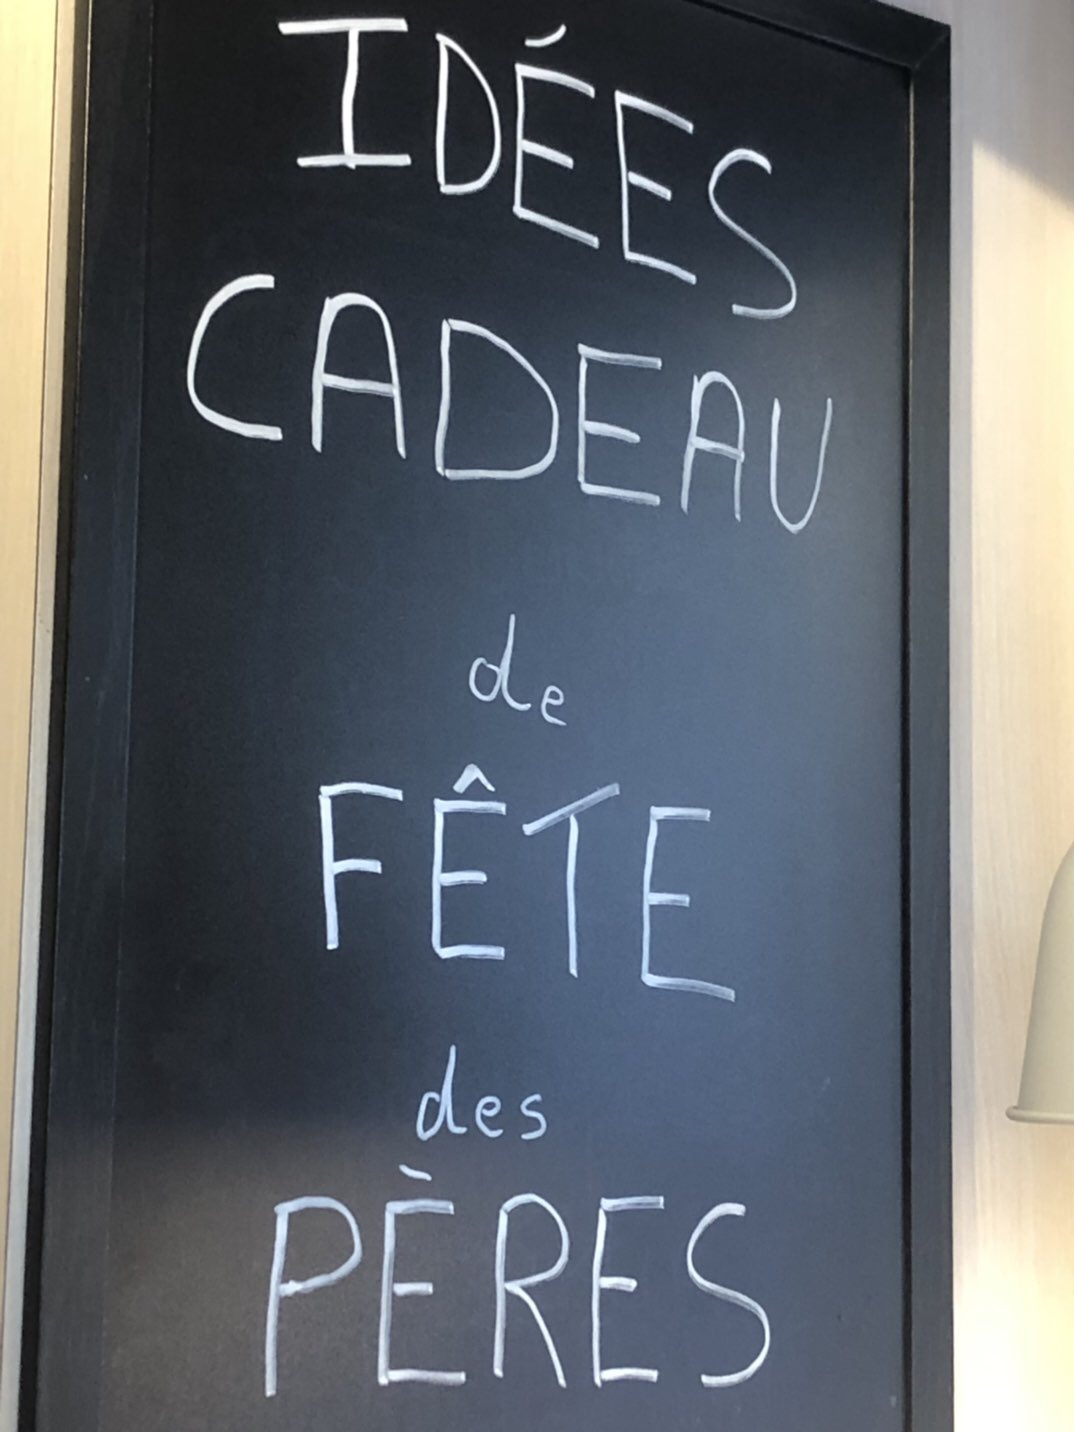 IDÉES
CADEAU
de
FÊTE
des
PÈRES